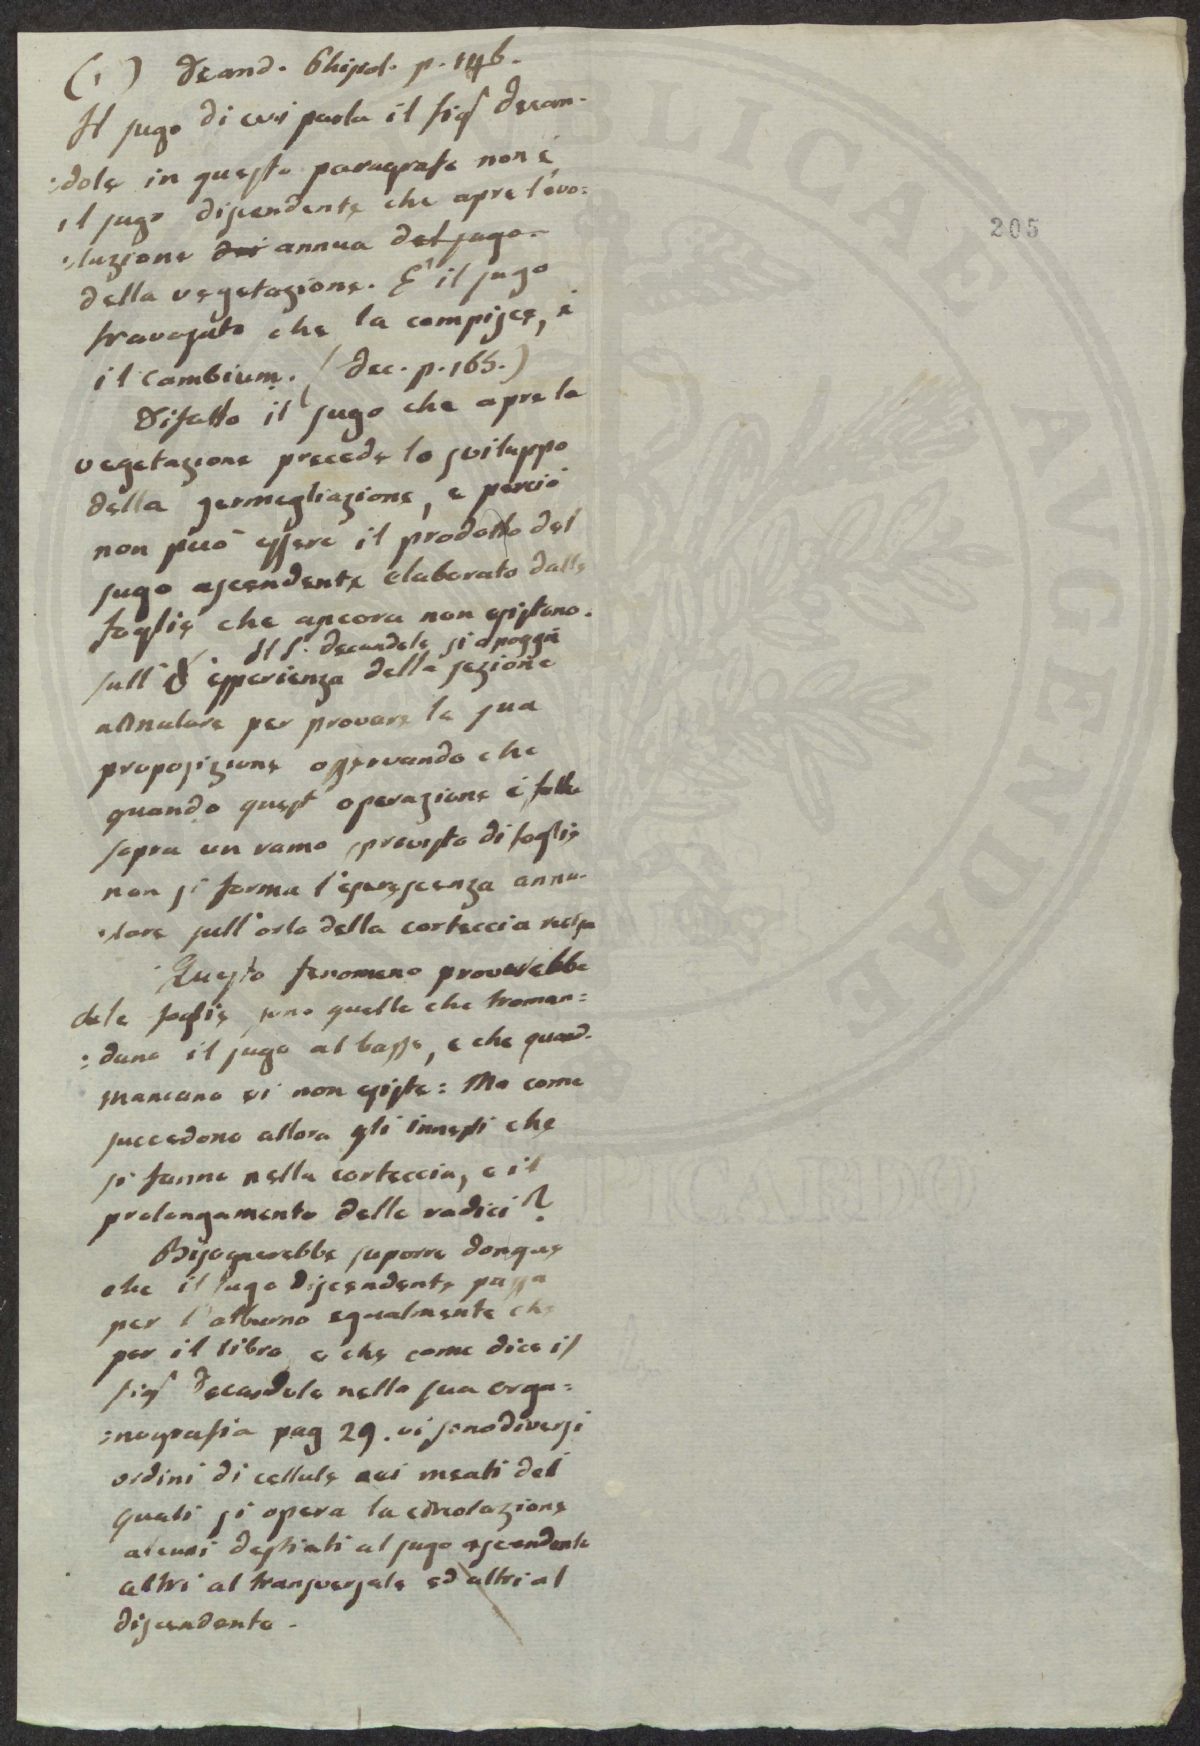 (1) Decand. Phisol. p. 146.
Il sugo di cui parla il sigr decan-
:dole in questo paragrafo non è
il sugo discendente che apre l'evo:
:luzione dei annua del sugo
della vegetazione. E' il sugo
travasato che la compisce, è
il cambium. (Dec. p. 165.)
Difatto il sugo che apre la
vegetazione precede lo sviluppo
della germegliazione, e perciò
non può essere il prodotto del
sugo ascendente elaborato dalle
foglie che ancora non esistono.
Il S. decandole si apoggia
sull' esperienza della sezione
annulare per provare la sua
proposizione osservando che
quando quest' operazione è fatta
sopra un ramo provisto di foglie
non si forma l'escrescenza annu-
:lare sull'orlo della corteccia recisa
Questo fenomeno proverebbe
che le foglie sono quelle che traman:
:dano il sugo al basso, e che quand.
mancano ei non esiste: Ma come
succedono allora gli innesti che
si fanno nella corteccia, e il
prolongamento delle radici?
Bisognerebbe suporre donque
che il sugo discendente passa
per l'alburno egualmente che
per il libro, e che come dice il
sigr Decandole nella sua orga:
:nografia pag 29. vi sono diversi
ordini di cellule nei meati dei
quali si opera la circolazione
alcuni destinati al sugo ascendente
altri al transversale ed altri al
discendente.
205